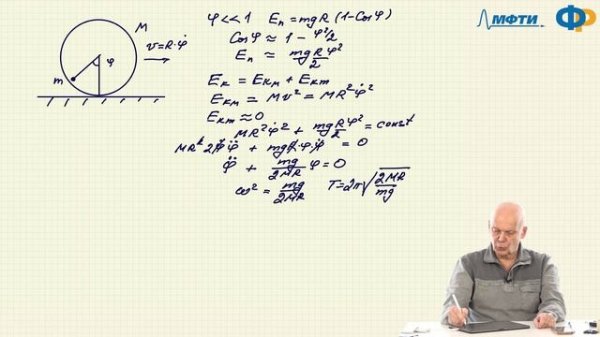 МФТИ
φ<<1 Eп = mgR(1-Cosφ)
Cosφ ≈ 1 - φ²/2
Eп ≈ mgRφ²/2
Eк = Eкм + Eкm
Eкм = Mv² = MR²φ̇²
Eкm ≈ 0
MR²φ̇² + mgRφ²/2 = const
MR²2φ̇φ̈ + mgRφφ̇ = 0
φ̈ + mg/2MR φ = 0
ω² = mg/2MR T = 2π√2MR/mg
M
v = R·φ̇
m
φ